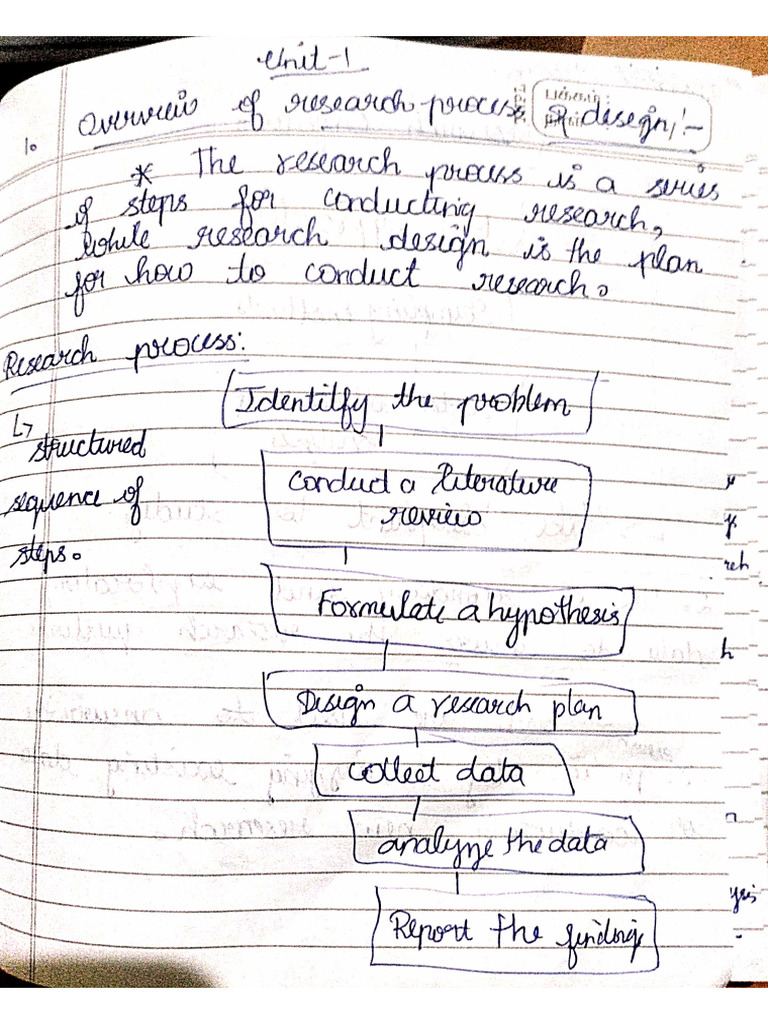 Unit-1
1. Overview of research process & design:-
* The research process is a series
of steps for conducting research,
while research design is the plan
for how to conduct research.
Research process:
Identilfy the problem
↳ structured
sequence of
steps.
Conduct a literature
review
Formulate a hypothesis
Design a research plan
Collect data
analyze the data
Report the findings